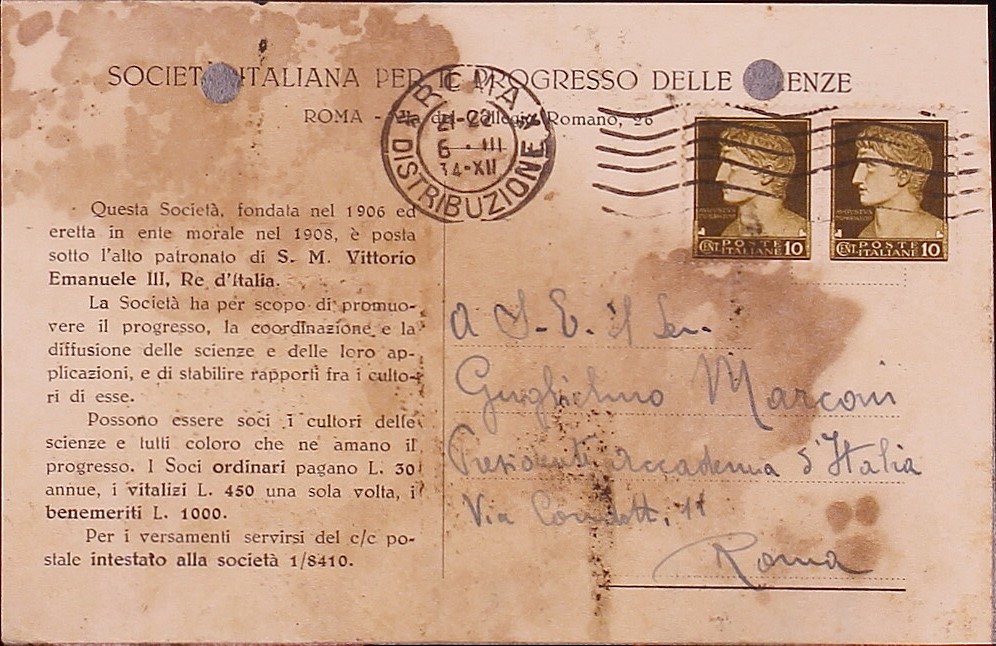 SOCIETÀ ITALIANA PER IL PROGRESSO DELLE SCIENZE
ROMA - Via del Collegio Romano, 26
ROMA
21-22
6 · III
34-XII
DISTRIBUZIONE
POSTE ITALIANE
CENT 10
POSTE ITALIANE
CENT 10
Questa Società, fondata nel 1906 ed
eretta in ente morale nel 1908, è posta
sotto l'alto patronato di S. M. Vittorio
Emanuele III, Re d'Italia.
La Società ha per scopo di promuo-
vere il progresso, la coordinazione e la
diffusione delle scienze e delle loro ap-
plicazioni, e di stabilire rapporti fra i culto-
ri di esse.
Possono essere soci i cultori delle
scienze e tutti coloro che ne amano il
progresso. I Soci ordinari pagano L. 30
annue, i vitalizi L. 450 una sola volta, i
benemeriti L. 1000.
Per i versamenti servirsi del c/c po-
stale intestato alla società 1/8410.
A S. E. il Sen.
Guglielmo Marconi
Presidente Accademia d'Italia
Via Condotti, 11
Roma